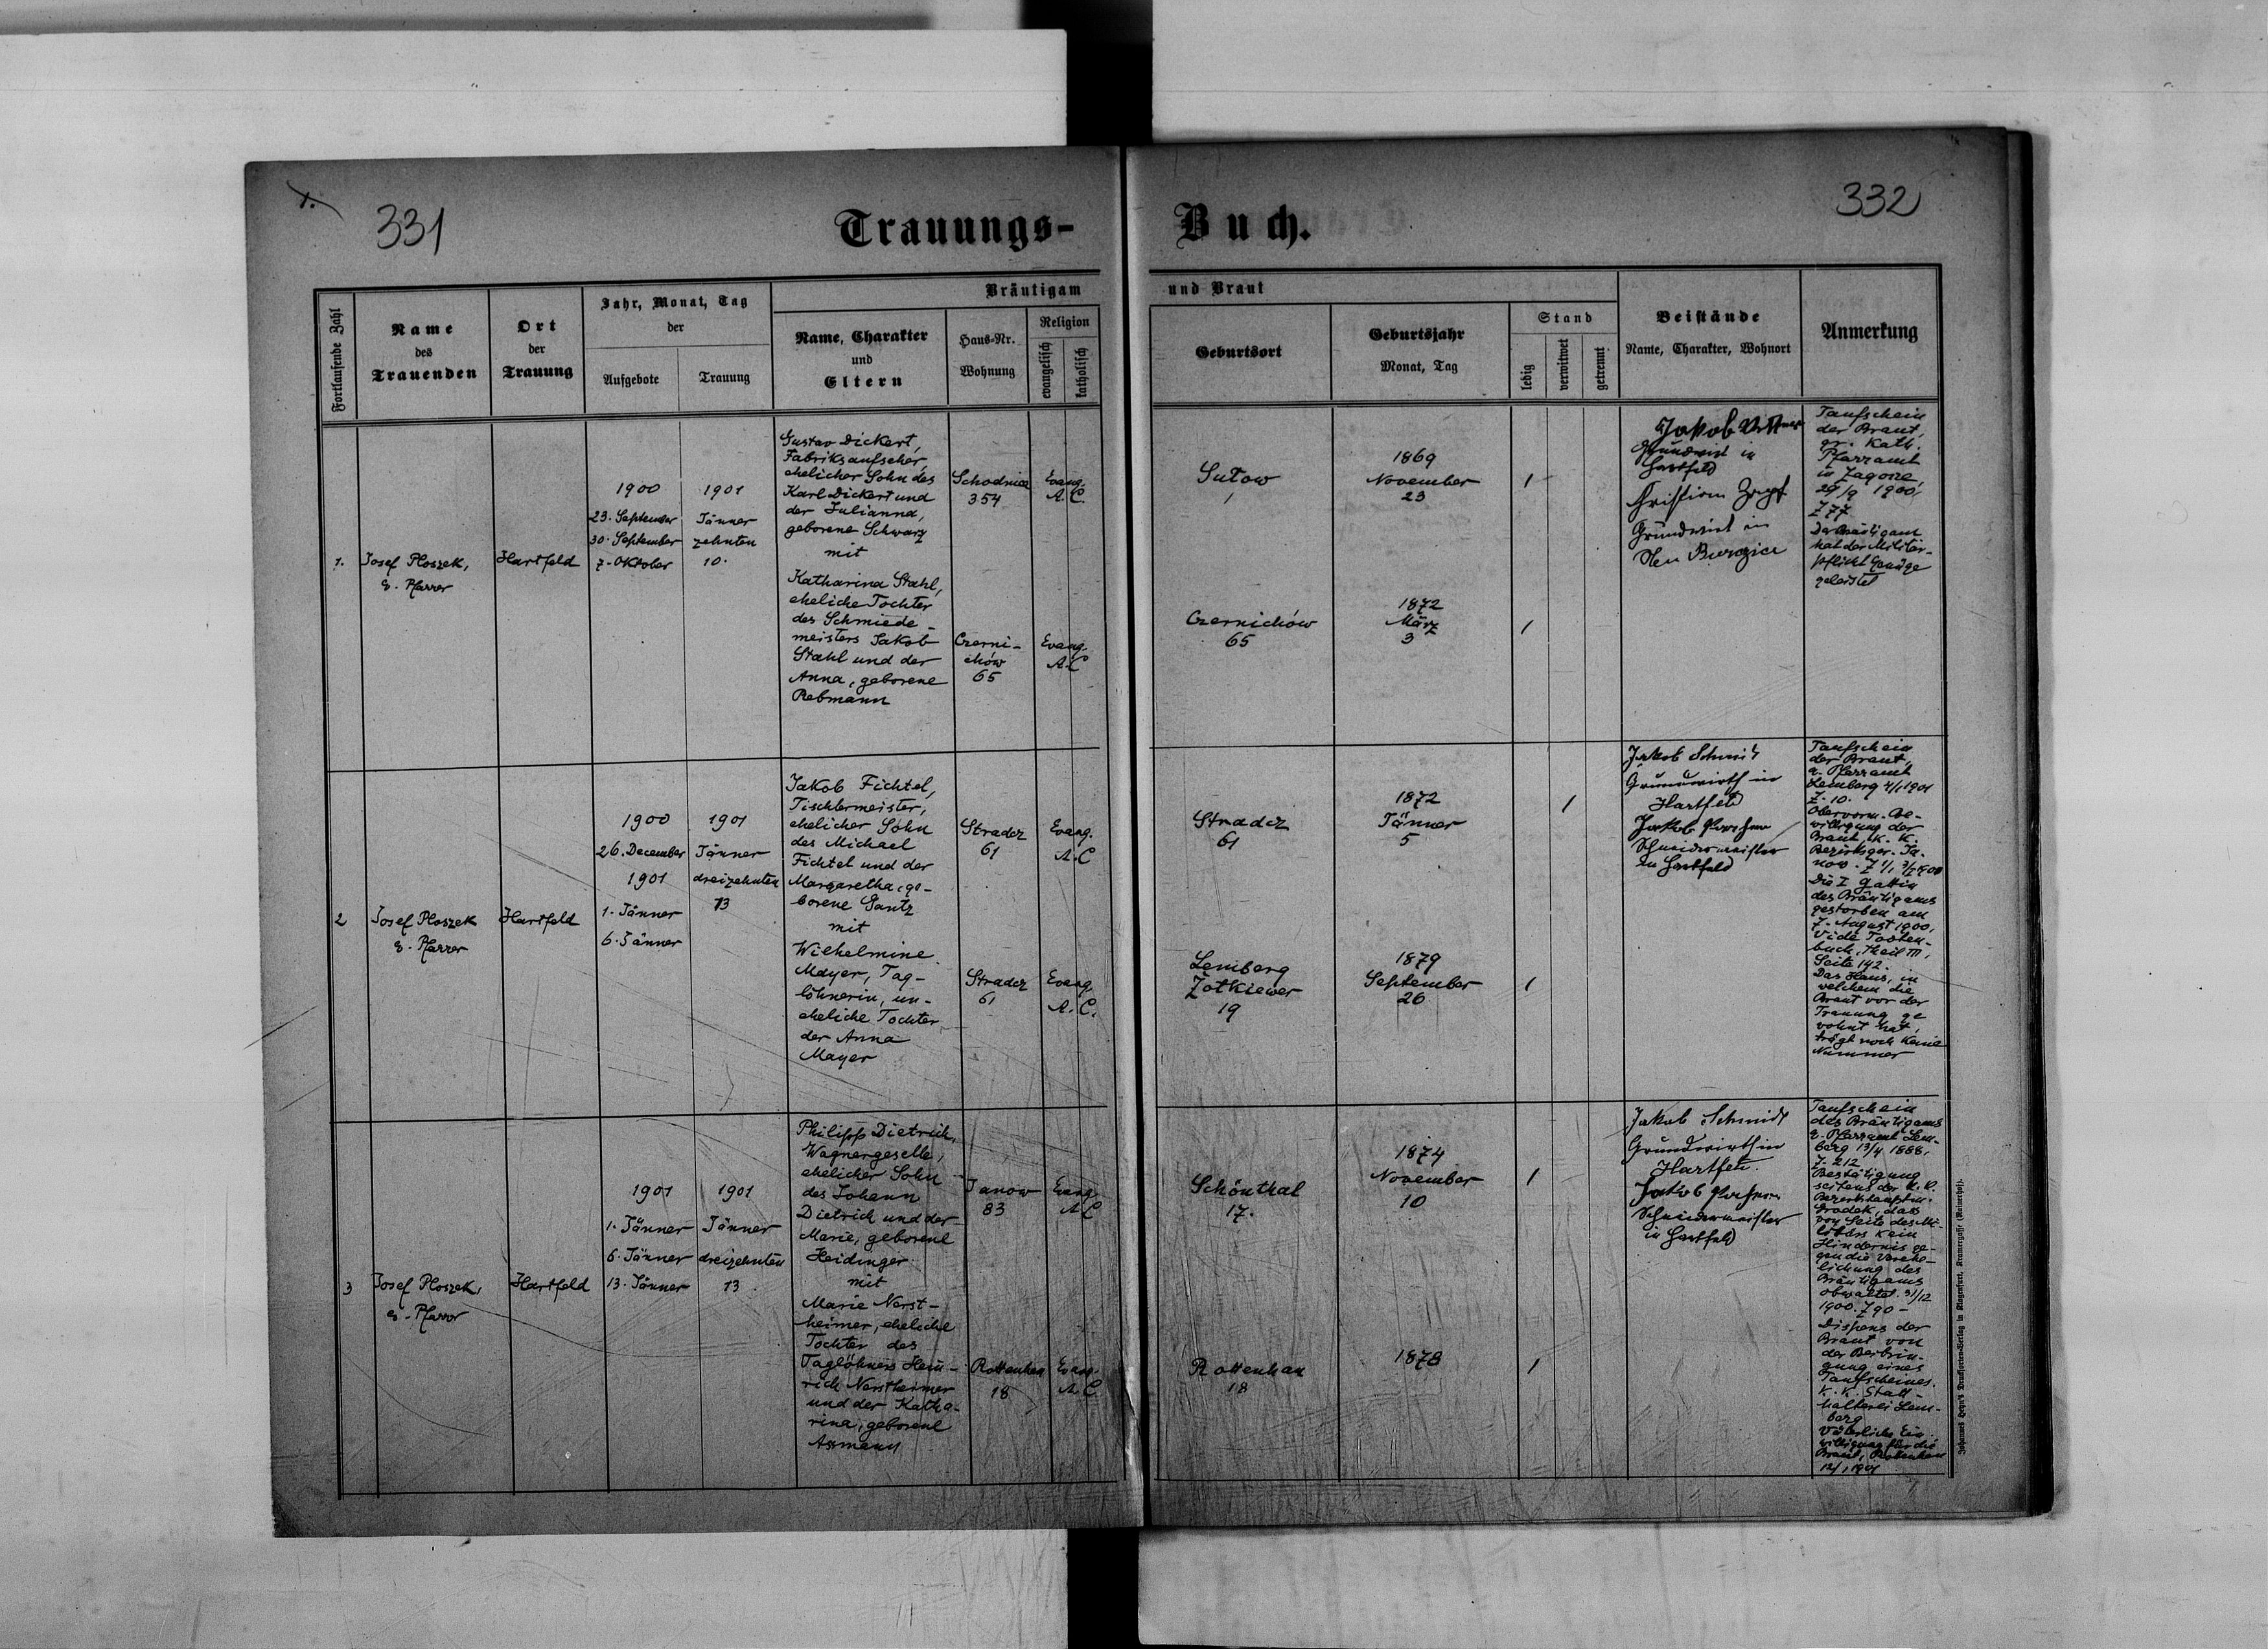 1.
331
332
Trauungs-Buch.
Fortlaufende Zahl
Name
des
Trauenden
Ort
der
Trauung
Jahr, Monat, Tag
der
Aufgebote
Trauung
Bräutigam und Braut
Name, Charakter
und
Eltern
Haus-Nr.
Wohnung
Religion
evangelisch
katholisch
Geburtsort
Geburtsjahr
Monat, Tag
Stand
ledig
verwitwet
getrennt
Beistände
Name, Charakter, Wohnort
Anmerkung
1.
Josef Ploszek,
e. Pfarrer
Hartfeld
1900
23. September
30. September
7. Oktober
1901
Jänner
zehnten
10.
Gustav Dickert,
Fabriksaufseher,
ehelicher Sohn des
Karl Dickert und
der Julianna,
geborene Schwarz
mit
Katharina Stahl,
eheliche Tochter
des Schmiede-
meisters Jakob
Stahl und der
Anna, geborene
Rebmann
Schodnica
354
Evang.
A. C.
Czerni-
chów
65
Evang.
A. C
1869
November
23
/
Czernichów
65
1872
März
3
/
Jakob
Grundwirt in
Hartfeld
Christian Zopf
Grundwirt in
Neu
Taufschein
der Braut,
gr. Kath.
Pfarramt
in
29/9 1900,
Z 77.
Der Bräutigam
hat der Militär-
pflicht Genüge
geleistet
2
Josef Ploszek
e. Pfarrer
Hartfeld
1900
26. December
1901
1. Jänner
6. Jänner
1901
Jänner
dreizehnten
13
Jakob Fichtel,
Tischlermeister,
ehelicher Sohn
des Michael
Fichtel und der
Margaretha, ge-
borene Gantz
mit
Wilhelmine
Mayer, Tag-
löhnerin, un-
eheliche Tochter
der Anna
Mayer
Stradcz
61
Evang.
A. C
Stradcz
61
Evang.
A. C.
Stradcz
61
1872
Jänner
5
/
Lemberg
Żołkiewer
19
1879
September
26
/
Jakob Schmidt
Grundwirth in
Hartfeld
Jakob
Schneidermeister
in Hartfeld
Taufschein
der Braut,
e. Pfarramt
Lemberg 4/1 1901
Z. 10.
Obervorm. Be-
willigung der
Braut, K. K.
Bezirksger. Ja-
now.
Die I Gattin
des Bräutigams
gestorben am
7. August 1900,
Vide Todten-
buch, Theil III,
Seite 142.
Das Haus, in
welchem die
Braut vor der
Trauung ge
wohnt hat,
trägt noch keine
Nummer
3
Josef Ploszek,
e. Pfarrer
Hartfeld
1901
1. Jänner
6. Jänner
13. Jänner
1901
Jänner
dreizehnten
13
Philipp Dietrich,
Wagnergeselle,
ehelicher Sohn
des Johann
Dietrich und der
Marie, geborene
Heidinger
mit
Marie Nerst-
heimer, eheliche
Tochter des
Taglöhners Hein-
rich Nerstheimer
und der Katha-
rina, geborene
Assmann
Janow
83
Evang
A C
Rottenhan
18
Evang.
A. C
Schönthal
17.
1874
November
10
/
Rottenhan
18
1878
/
Jakob Schmidt
Grundwirth in
Hartfeld.
Jakob
Schneidermeister
in Hartfeld
Taufschein
des Bräutigams
e. Pfarramt Lem-
berg 13/4 1888,
Z. 212
Bestätigung
seitens der K. K.
Bezirkshauptm.
Gradek, dass
von Seite des Mi-
litärs kein
Hindernis ge-
gen die Verehe-
lichung des
Bräutigams
obwaltet. 31/12
1900. Z 90 -
Dispens der
Braut von
der Beibrin-
gung eines
Taufscheines.
K. K. Statt-
halterei Lem-
berg
Väterliche Ein
willigung für die
Braut, Rottenhan
12/1 1901
Johannes Heyn's Drucksorten-Verlag in Klagenfurt, Kramergasse (Kaiserhof).